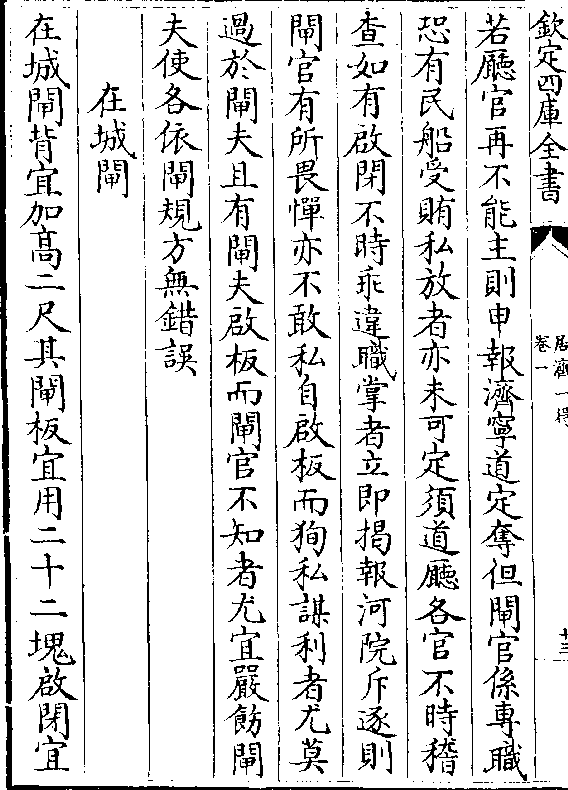 欽定四庫全書
居濟一得
卷一
十三
若廳官再不能主則申報濟寧道定奪但閘官係專職
恐有民船受賄私放者亦未可定須道廳各官不時稽
查如有啟閉不時乖違職掌者立即揭報河院斥逐則
閘官有所畏憚亦不敢私自啟板而狥私謀利者尤莫
過於閘夫且有閘夫啟板而閘官不知者尤宜嚴飭閘
夫使各依閘規方無錯誤
在城閘
在城閘背宜加高二尺其閘板宜用二十二塊啟閉宜